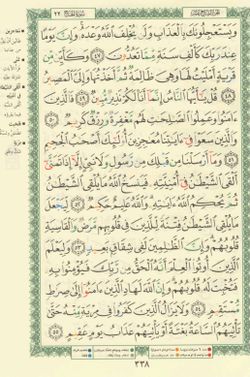 وَيَسْتَعْجِلُونَكَ بِالْعَذَابِ وَلَن يُخْلِفَ اللَّهُ وَعْدَهُ وَإِنَّ يَوْمًا
عِندَ رَبِّكَ كَأَلْفِ سَنَةٍ مِّمَّا تَعُدُّونَ ٤٧ وَكَأَيِّن مِّن
قَرْيَةٍ أَمْلَيْتُ لَهَا وَهِيَ ظَالِمَةٌ ثُمَّ أَخَذْتُهَا وَإِلَيَّ الْمَصِيرُ
٤٨ قُلْ يَا أَيُّهَا النَّاسُ إِنَّمَا أَنَا لَكُمْ نَذِيرٌ مُّبِينٌ ٤٩ فَالَّذِينَ
آمَنُوا وَعَمِلُوا الصَّالِحَاتِ لَهُم مَّغْفِرَةٌ وَرِزْقٌ كَرِيمٌ ٥٠
وَالَّذِينَ سَعَوْا فِي آيَاتِنَا مُعَاجِزِينَ أُولَٰئِكَ أَصْحَابُ الْجَحِيمِ
٥١ وَمَا أَرْسَلْنَا مِن قَبْلِكَ مِن رَّسُولٍ وَلَا نَبِيٍّ إِلَّا إِذَا تَمَنَّىٰ
أَلْقَى الشَّيْطَانُ فِي أُمْنِيَّتِهِ فَيَنسَخُ اللَّهُ مَا يُلْقِي الشَّيْطَانُ
ثُمَّ يُحْكِمُ اللَّهُ آيَاتِهِ وَاللَّهُ عَلِيمٌ حَكِيمٌ ٥٢ لِّيَجْعَلَ
مَا يُلْقِي الشَّيْطَانُ فِتْنَةً لِّلَّذِينَ فِي قُلُوبِهِم مَّرَضٌ وَالْقَاسِيَةِ
قُلُوبُهُمْ وَإِنَّ الظَّالِمِينَ لَفِي شِقَاقٍ بَعِيدٍ ٥٣ وَلِيَعْلَمَ
الَّذِينَ أُوتُوا الْعِلْمَ أَنَّهُ الْحَقُّ مِن رَّبِّكَ فَيُؤْمِنُوا بِهِ
فَتُخْبِتَ لَهُ قُلُوبُهُمْ وَإِنَّ اللَّهَ لَهَادِ الَّذِينَ آمَنُوا إِلَىٰ صِرَاطٍ
مُّسْتَقِيمٍ ٥٤ وَلَا يَزَالُ الَّذِينَ كَفَرُوا فِي مِرْيَةٍ مِّنْهُ حَتَّىٰ
تَأْتِيَهُمُ السَّاعَةُ بَغْتَةً أَوْ يَأْتِيَهُمْ عَذَابُ يَوْمٍ عَقِيمٍ ٥٥
٣٣٨